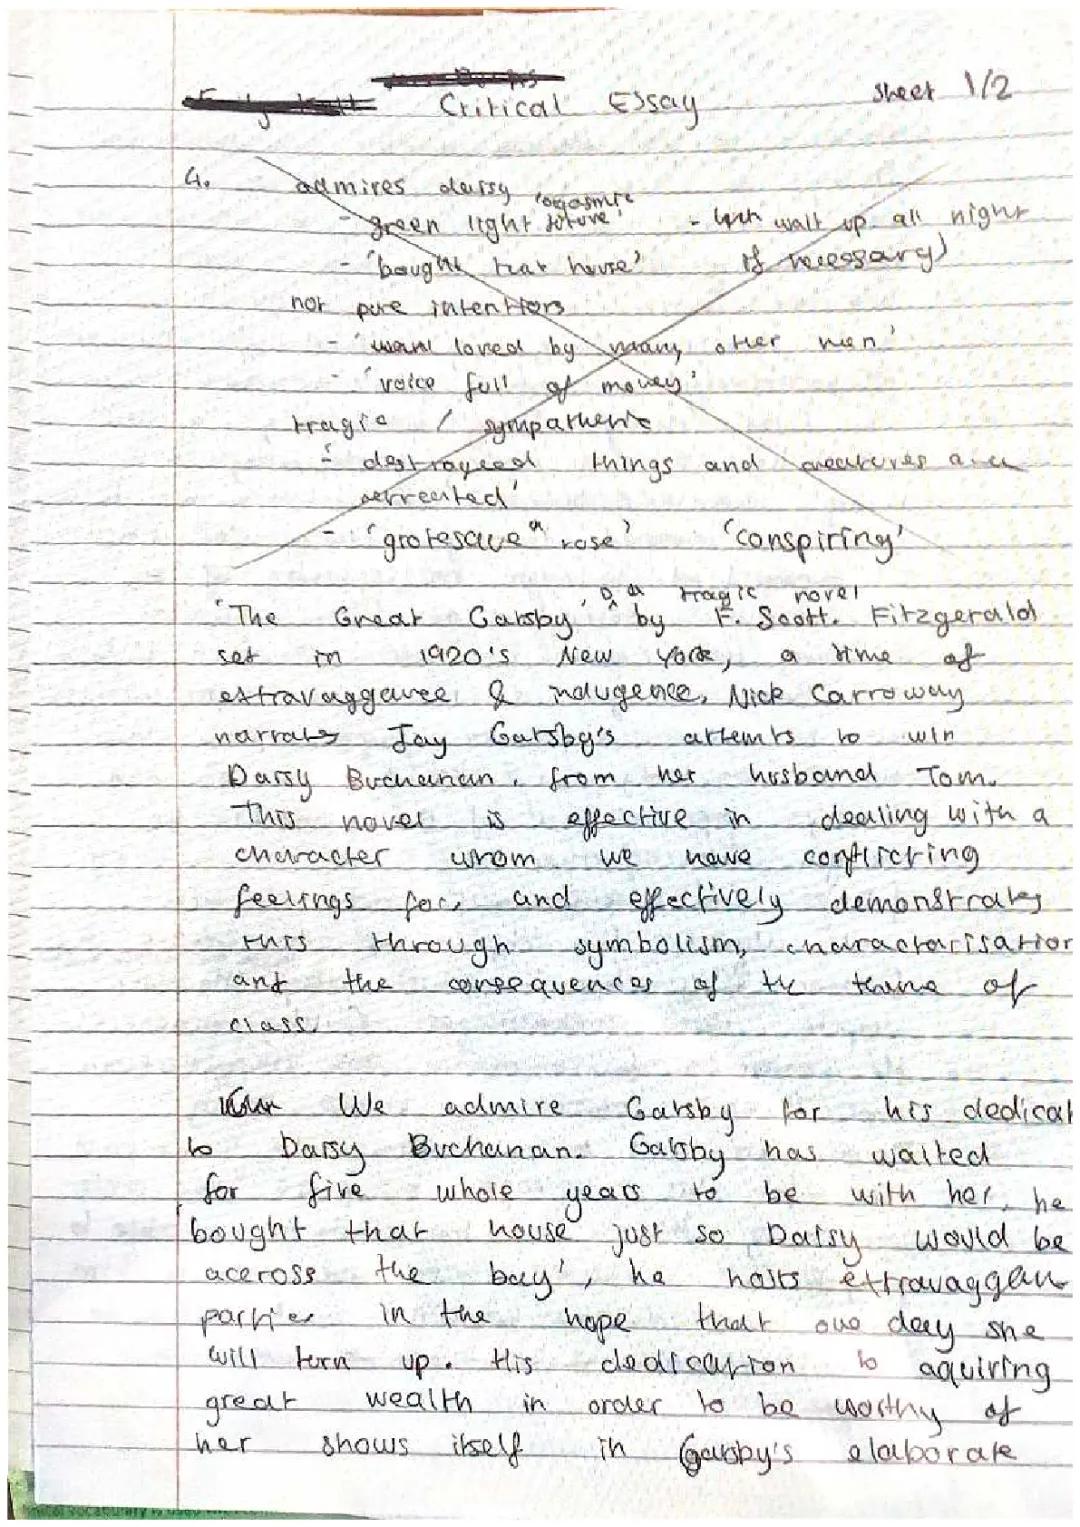 Critical Essay sheet 1/2
4. admires daisy
'orgasmic
- green light future' - 4th wait up all night
- 'bought that house' if necessary)
not pure intentions
- 'was loved by many other men'
- 'voice full of money'
tragic / sympathetic
- destroyed things and creatures and
retreated'
- 'grotesque a rose' 'conspiring'
is a tragic novel
'The Great Gatsby', by F. Scott. Fitzgerald
set in 1920's New York, a time of
extravaggance & indugence, Nick Carroway
narrates Jay Gatsby's attemts to win
Daisy Buchanan, from her husband Tom.
This novel is effective in dealing with a
character whom we have conflicting
feelings for, and effectively demonstrates
this through symbolism, characterisation
and the consequences of the theme of
class.
We admire Gatsby for his dedicat
to Daisy Buchanan. Gatsby has waited
for five whole years to be with her, he
'bought that house just so Daisy would be
aceross the bay', he hosts extravaggan
parties in the hope that one day she
will turn up. His dedication to aquiring
great wealth in order to be worthy of
her shows itself in Gatsby's elaborate